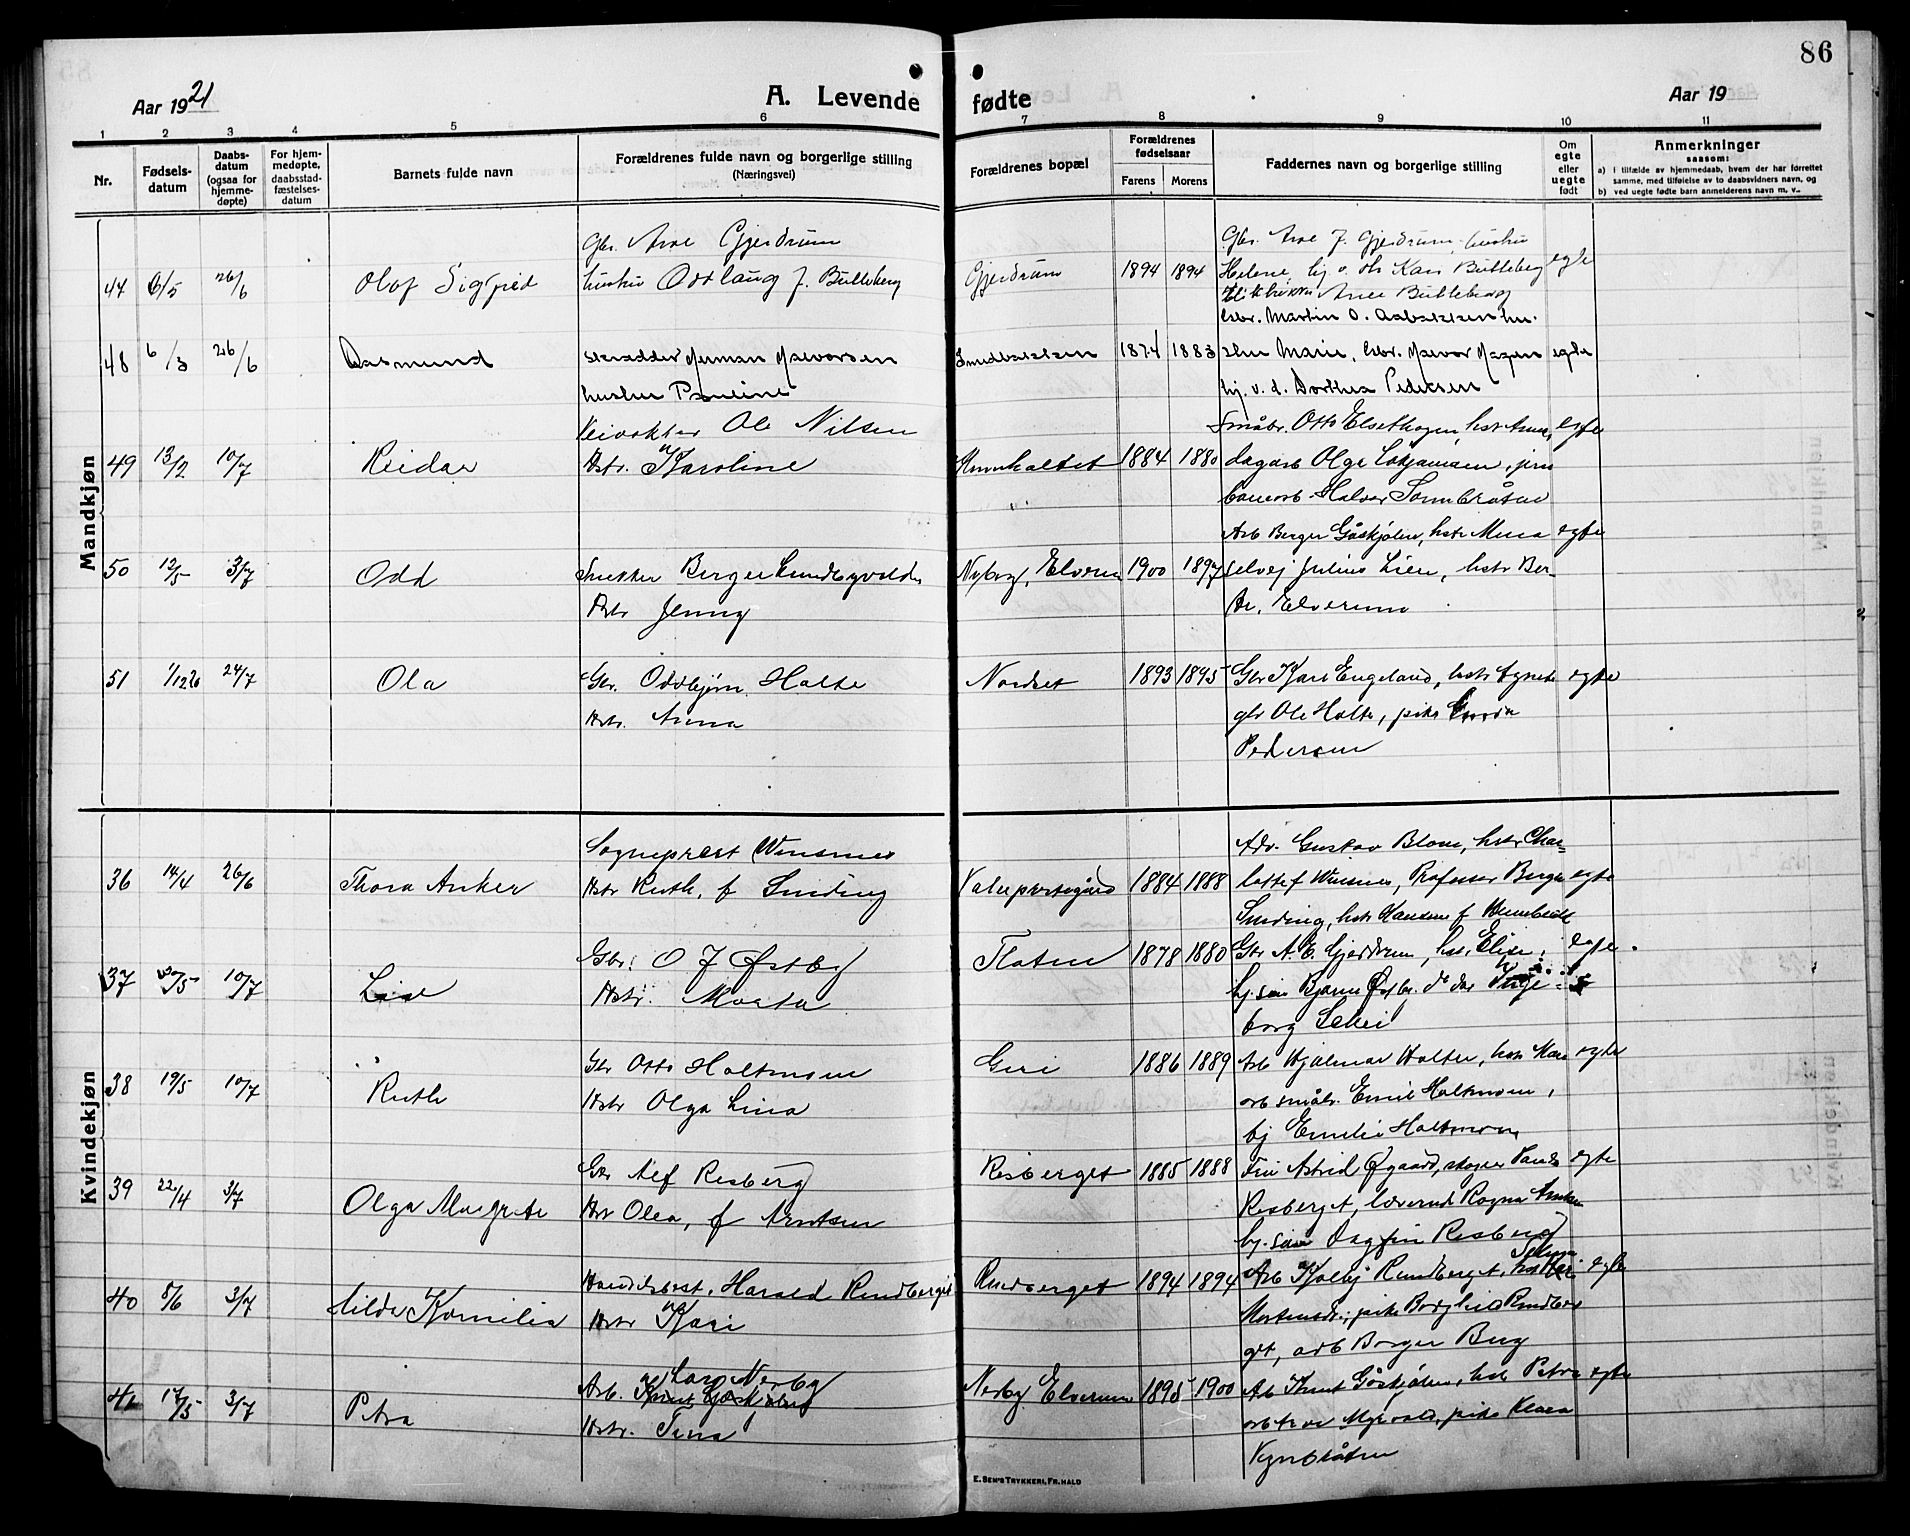 86
Aar 1921
A. Levende fødte
Aar 19
1 2 3 4 5 6 7 8 9 10 11
Nr.
Fødsels-
datum
Daabs-
datum
(ogsaa for
hjemme-
døpte)
For hjem-
medøpte,
daabsstad-
fæstelses-
datum
Barnets fulde navn
Forældrenes fulde navn og borgerlige stilling
(Næringsvei)
Forældrenes bopæl
Forældrenes
fødselsaar
Farens Morens
Faddernes navn og borgerlige stilling
Om
egte
eller
uegte
født
Anmerkninger
saasom:
a) i tilfælde av hjemmedaab, hvem der har forrettet
samme, med tilføielse av to daabsvidners navn, og
b) ved uegte fødte barn anmelderens navn m. v.
Mandkjøn
47 6/5 26/6 Olof Sigfred
Gbr. Arne Gjerdrum
hustru Oddlaug f. Bulleberg
Gjerdrum 1894 1894
Gbr. Arne J. Gjerdrum, hustru
Helene, hj. v. Kari Bulleberg
Arne Bulleberg
egte
48 6/3 26/6 Aasmund
skrædder Herman Halvorsen
hustru Pauline
Smedbakken 1874 1883
Gbr. Martin O. Aabakken hu-
stru Marie, Gbr. Halvor Hagen
hj. v. d. Dorthea Pedersen
egte
49 13/2 10/7 Reidar
Veivokter Ole Nilsen
Hstr. Karoline
1884 1880
Småbr. Otto Elsethagen, hstr Anna,
egte
50 12/5 3/7 Odd
Snekker Berger Lundbyvolden
Hstr Jenny
Nyborg, Elverum 1900 1897
Arb Berger Gåskjølen, hstr Mina
selvej Julius Lien, hstr Ber-
te, Elverum
egte
51 1/12 20 24/7 Ola
Gbr. Oddbjørn Holte
Hstr. Anna
Nordset 1893 1895
Gbr Kare Engeland, hstr Agnete
gbr Ole Holte, pike
Pedersen
egte
Kvindekjøn
36 14/4 26/6 Thora Anker
Sogneprest Winsnes
Hstr Ruth, f Sinding
Vålerprestegård 1884 1888
Adv. Gustav Blom, hstr Char-
lotte f Winsnes, Professor Birger
Sinding, hstr
egte
37 10/7
Gbr. O J Østby
Hstr. Marta
Flaten 1878 1880
Gbr A. E. Gjerdrum, hst. Elise,
hj. søn Bjarne Østby. do dat Inge-
borg
egte
38 19/5 10/7 Ruth
Gbr Otto Holtmoen
Hstr Olga Lina
Geri 1886 1889
Arb Hjalmar Holter, hstr Kar
arb småbr. Emil Holtmoen,
hj Emilie Holtmoen
egte
39 22/4 3/7 Olga Margrete
Gbr Alf Risberg
Hstr Olea, f Arntsen
Risberget 1885 1888
Fru Astrid Øgaard,
Risberget, lærerinde Ragna
hj. søn Dagfin Risberg
egte
40 8/6 3/7 Hilda Kornelia
Handelsbest. Harald Rundberget
Hstr Kari
Rundberget 1894 1894
Arb Kolbj Rundberget,
pike Borghild Rundber-
get, arb Borger Berg
egte
41 17/5 3/7 Petra
Arb. Lars Nerby
Hstr. Tina
Nerby Elverum 1895 1900
Arb Knut Gåskjølen, hstr Petra
arb Myrvold, pike Klara
egte
E. SEM'S TRYKKERI, FR.HALD